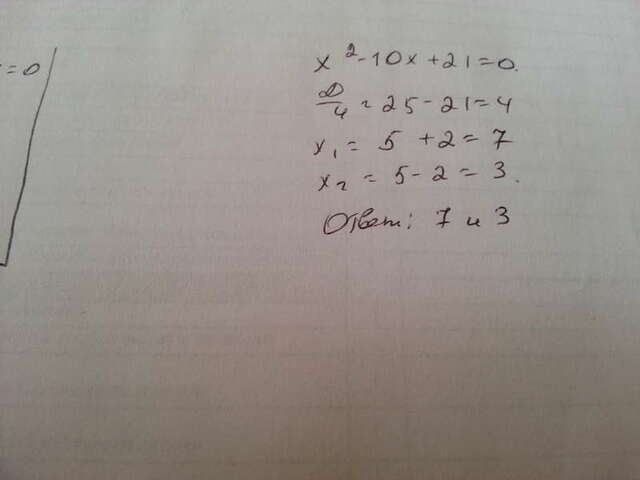 = 0
x² - 10x + 21 = 0.
D/4 = 25 - 21 = 4
x₁ = 5 + 2 = 7
x₂ = 5 - 2 = 3.
Ответ: 7 и 3